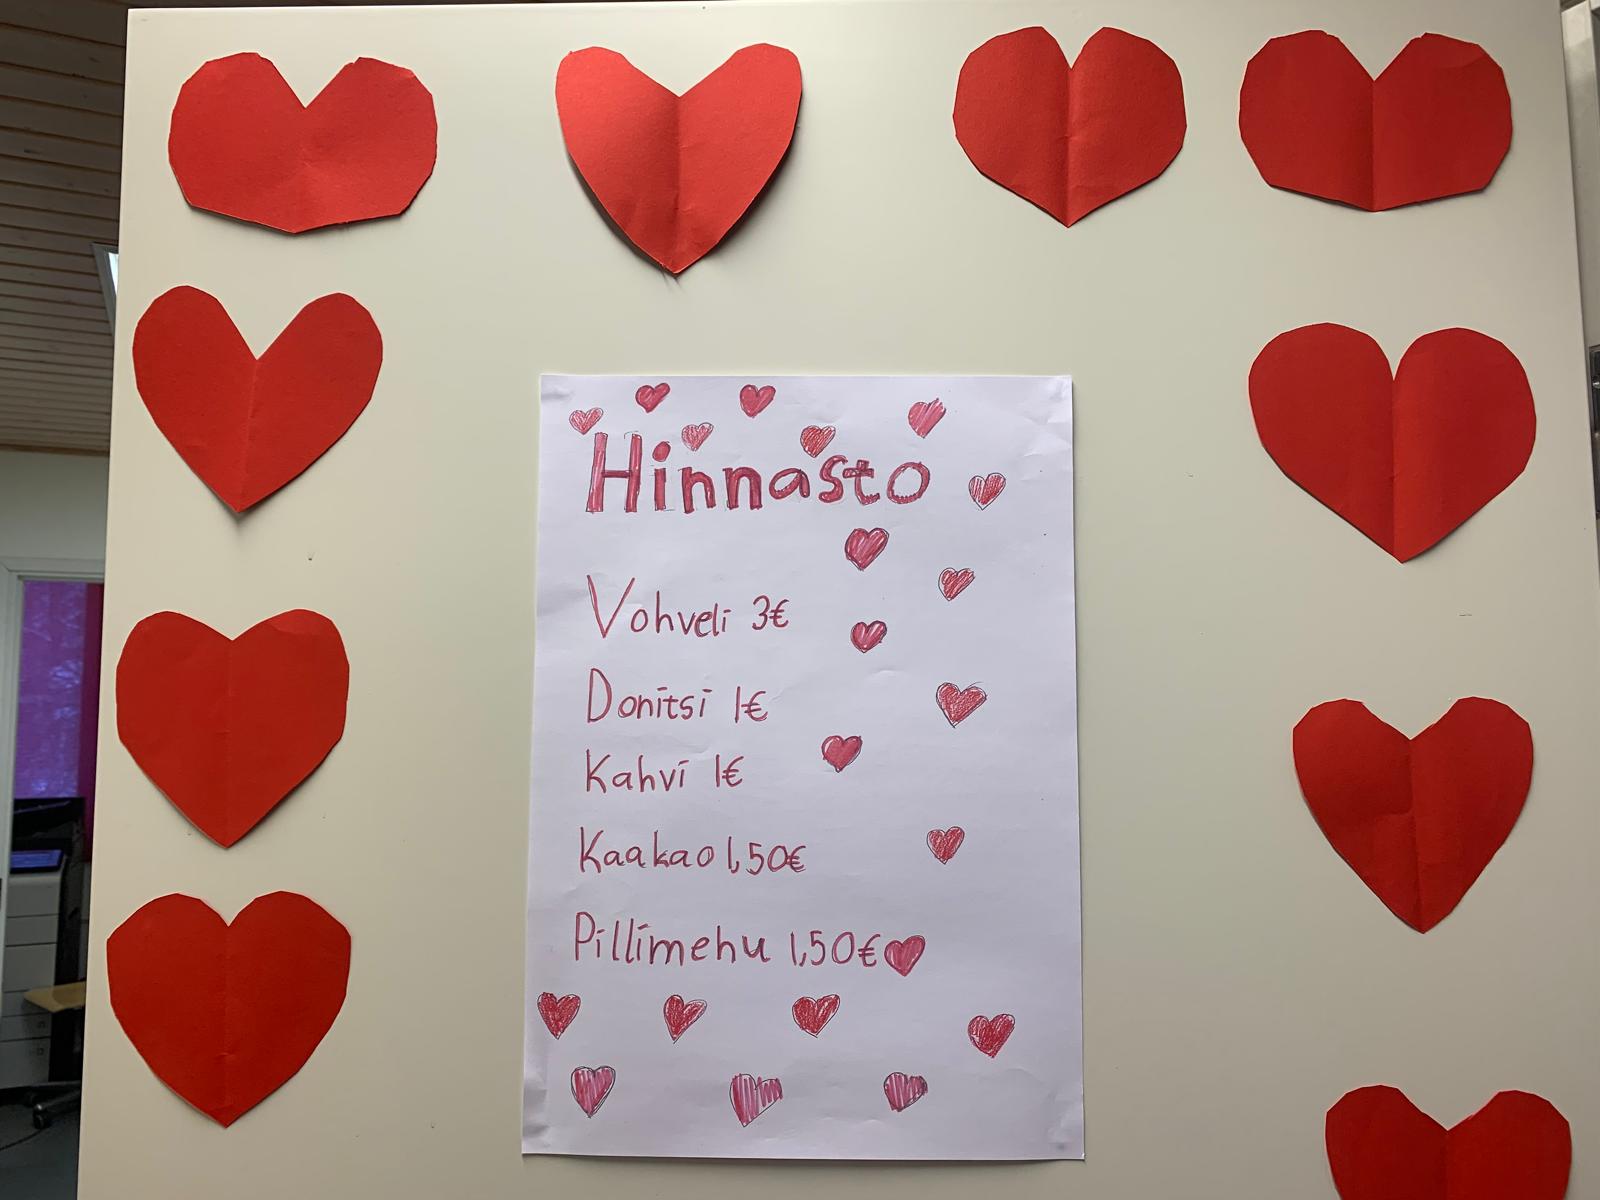 Hinnasto
Vohveli 3€
Donitsi 1€
Kahvi 1€
Kaakao 1,50€
Pillimehu 1,50€